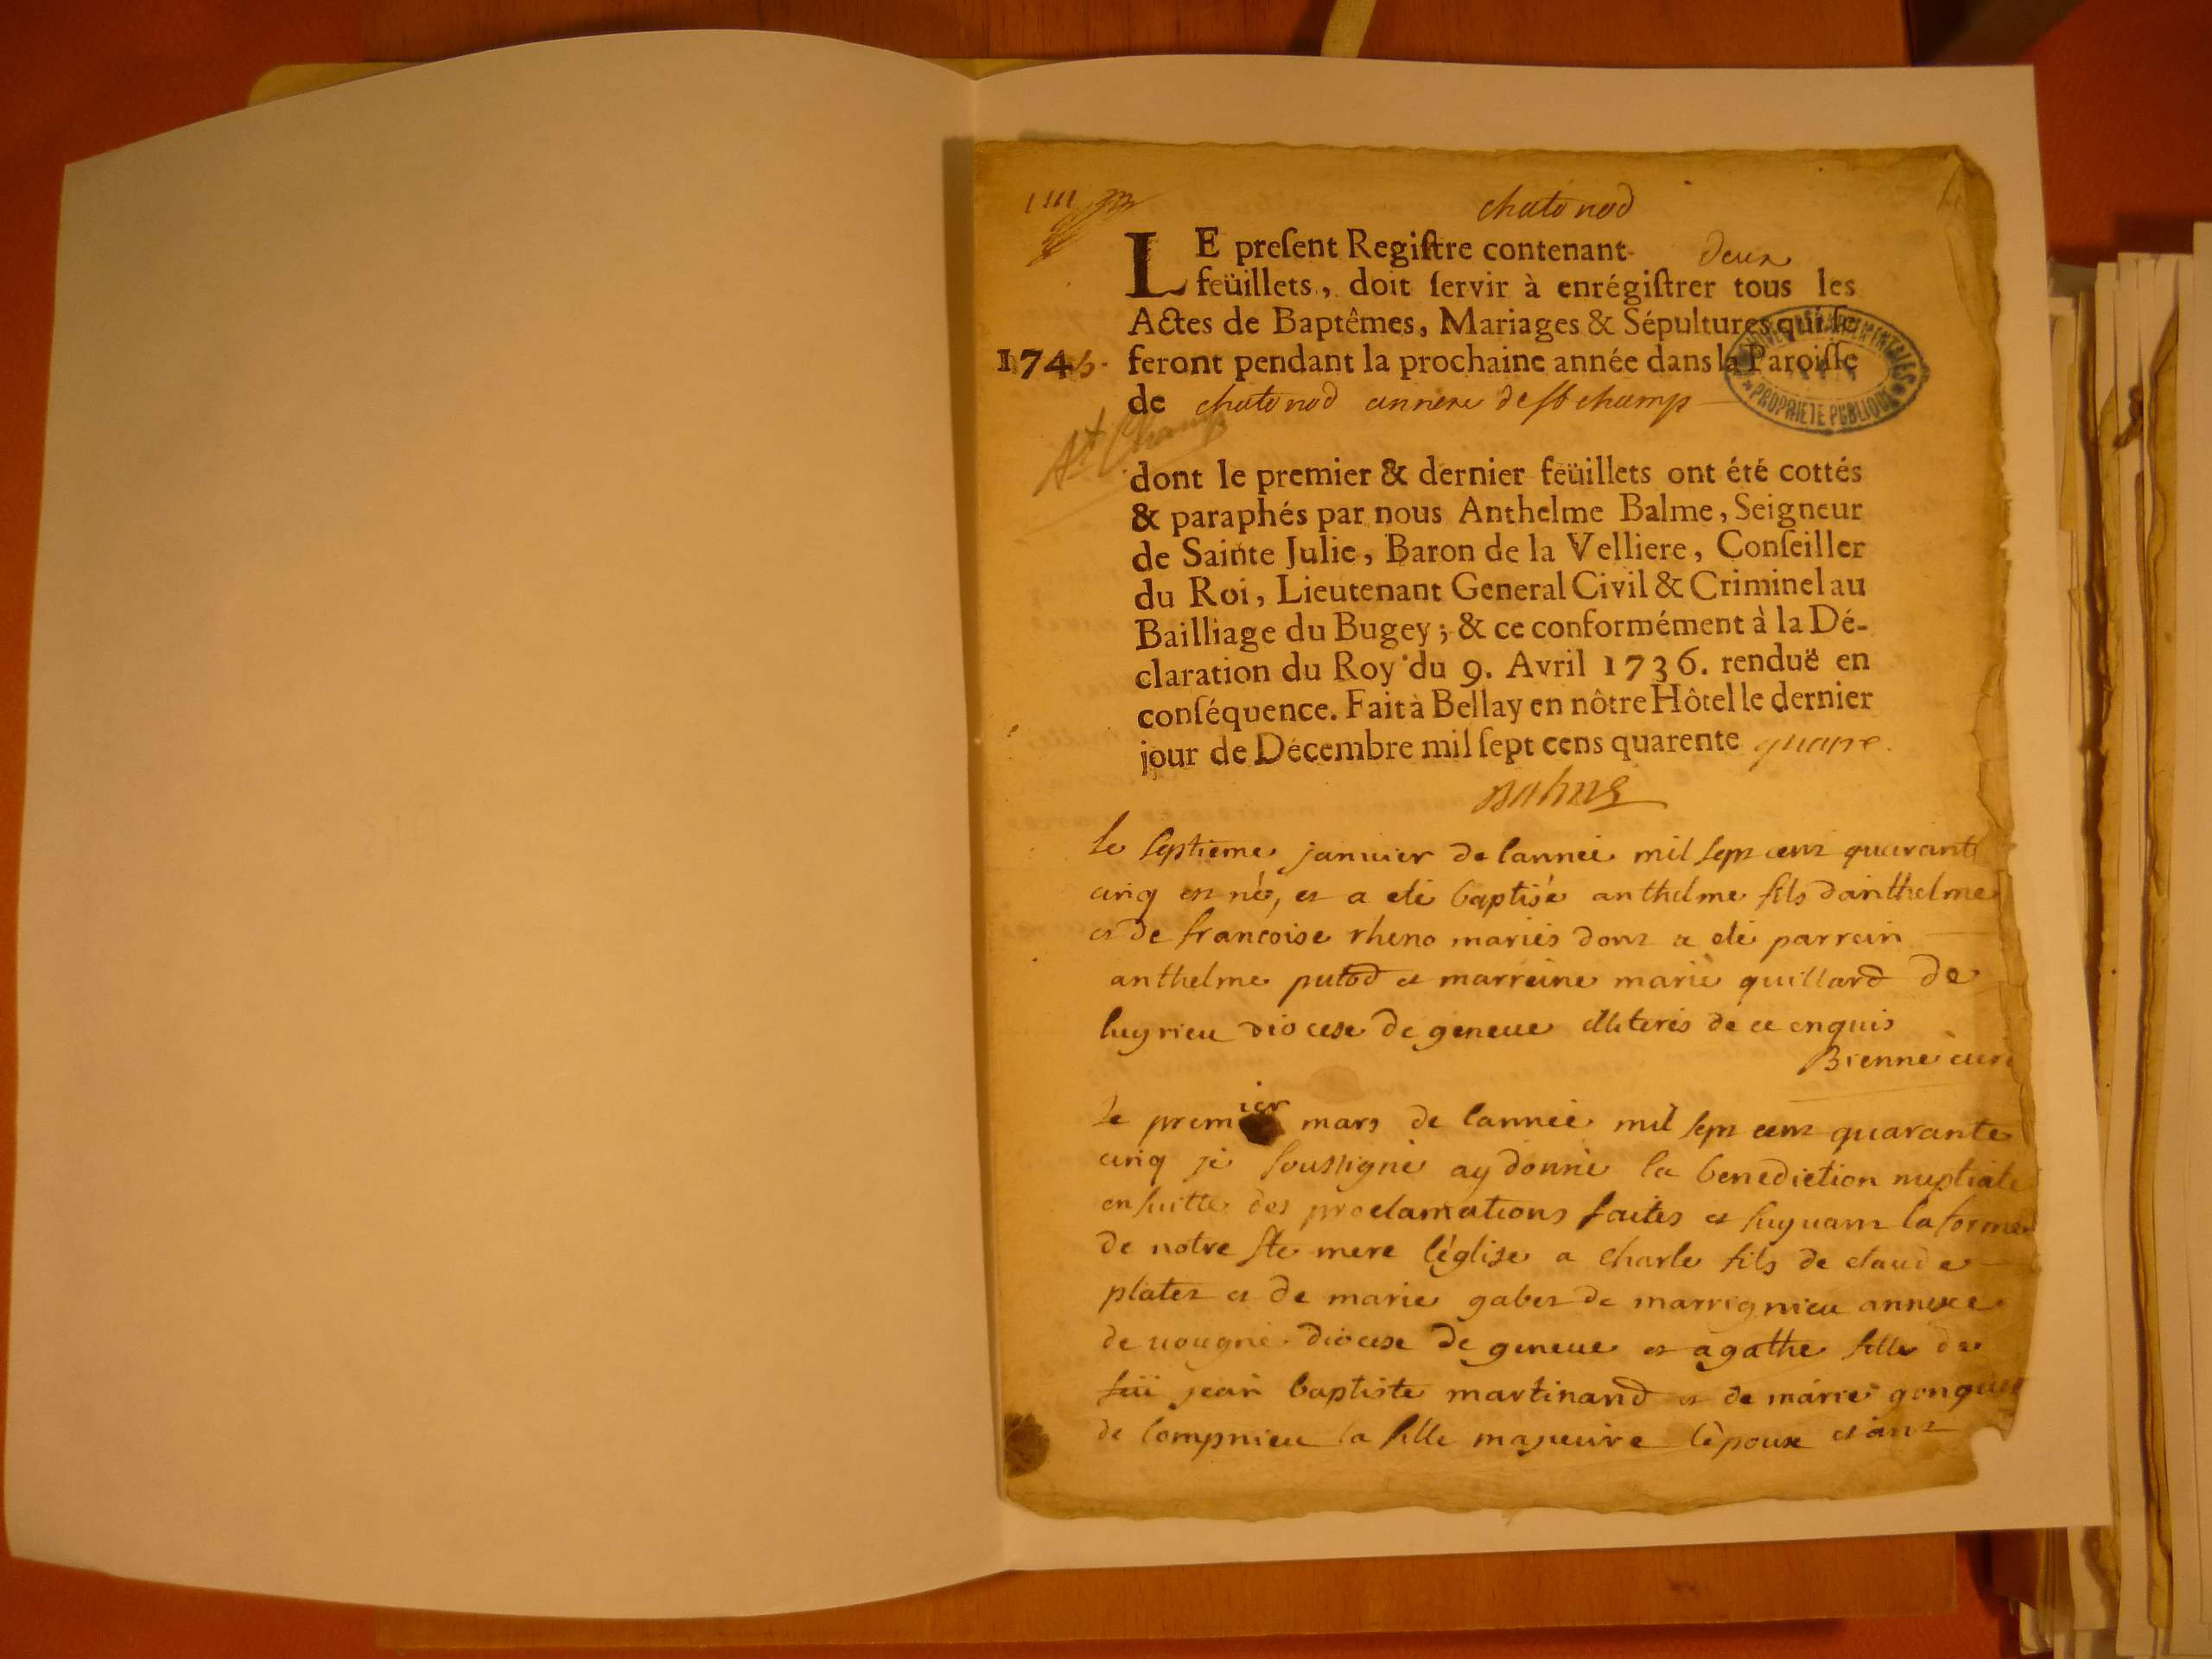 chatonod
LE preſent Regiſtre contenant deux
feüillets, doit ſervir à enrégiſtrer tous les
Actes de Baptêmes, Mariages & Sépultures qui ſe
1745. feront pendant la prochaine année dans la Paroiſſe
de chatonod annexe de st champ
St Champ
dont le premier & dernier feüillets ont été cottés
& paraphés par nous Anthelme Balme, Seigneur
de Sainte Julie, Baron de la Velliere, Conſeiller
du Roi, Lieutenant General Civil & Criminel au
Bailliage du Bugey ; & ce conformément à la Dé-
claration du Roy du 9. Avril 1736. renduë en
conſéquence. Fait à Bellay en nôtre Hôtel le dernier
jour de Décembre mil ſept cens quarente quatre.
Balme
ARCHIVES DÉPARTEMENTALES
PROPRIÉTÉ PUBLIQUE
le septieme janvier de lannee mil sept cent quarante
cinq est né, et a eté baptisé anthelme fils danthelme
et de francoise rheno mariés dont a eté parrain
anthelme putod et marreine marie guillard de
luyrieu diocese de geneve illiterés de ce enquis
Bienne curé
le premier mars de lannée mil sept cent quarante
cinq je soussigné ay donné la benediction nuptiale
ensuitte des proclamations faites et suyuant la forme
de notre ste mere l'église a charle fils de claude
platet et de marie gabet de marrignieu annexe
de uougne diocese de geneue et agathe fille de
feü jean baptiste martinand et de marie
de lompnieu la fille majeure l'epoux etant